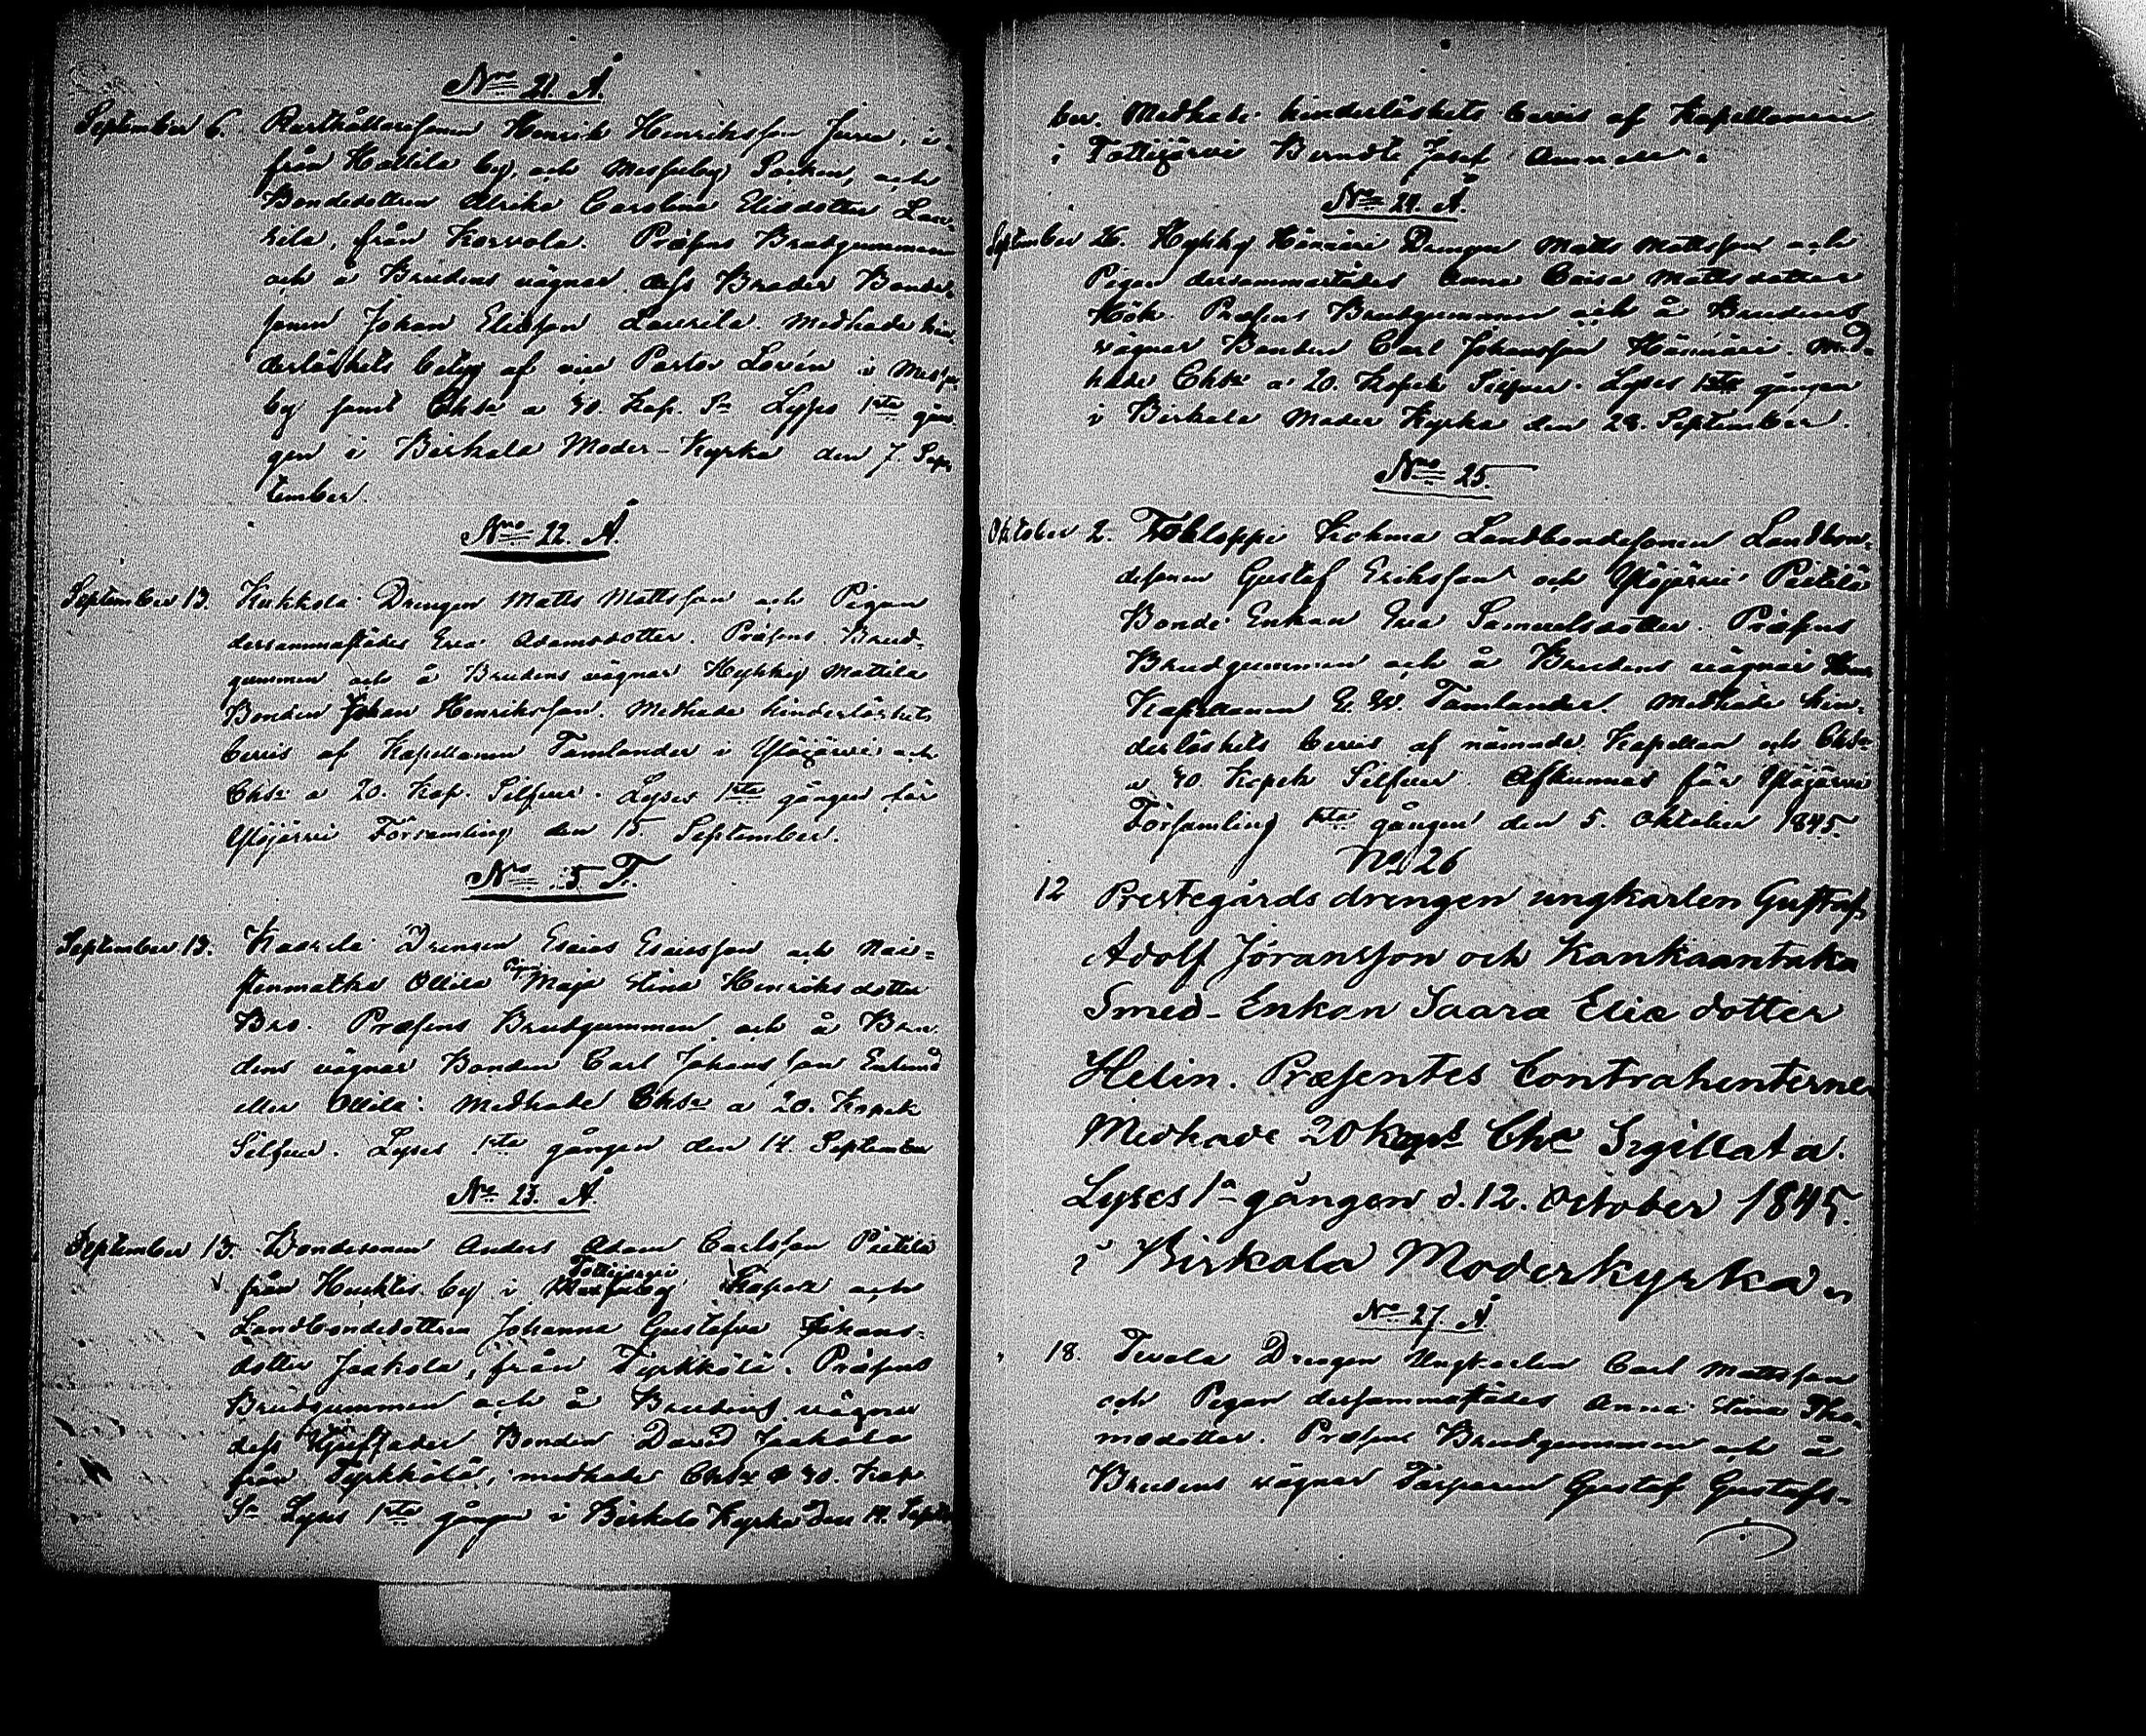 Nro 21. Å
September 6. Rusthållaresonen Henrik Henriksson Jurva, i
från Hattila by, och Messuby Sockin, och
Bondedottren Ulrika Carolina Elisdotter Lau-
rila, från Korvola. Præsens Brudgummen
och å Brudens vägnar dess Broder Bonde-
sonen Johan Eliesson Laurila. Medhade hin-
derlöshets betyg af vice Pastor Lovén i Messu-
by samt Chtæ a 40. Kop. Sr Lyses 1sta gån-
gen i Birkala Moder-Kyrka den 7. Sep-
tember.
Nro 22. Å
September 13. Kukkola Drengen Matts Mattsson och Pigan
dersammastädes Eva Adamsdotter. Præsens Brud-
gummen och å Brudens vägnar Hykky Mattila
Bonden Johan Henriksson. Medhade hinderlöshets
bevis af Kapellanen Tamlander i Ylöjärvi och
Chtæ a 20. Kop. Silfver. Lyses 1sta gången för
Ylöjärvi Församling den 15 September.
Nro 5 T.
September 13. Kaarila Drengen Esaias Esaiasson och Nais-
tenmatka Ollila Pigan Maja Stina Henriksdotter
Bro. Præsens Brudgummen och å Bru-
dens vägnar Bonden Carl Johansson
eller Ollila. Medhade Chtæ a 20. Kopek
Silfver. Lyses 1sta gången den 14. September
No 23. Å
September 13. Bondesonen Anders Adam Carlsson Pietilä
från Huchtis by i Messuby Tottijärvi Kapell och
Landbondedottren Johanna Gustafva Johans-
dotter Jaakola, från Tyrkkölä. Præsens
Brudgummen och å Brudens vägnar
dess Styffader Bonden David Jaakola
från Tyrkkölä, medhade Chtæ a 40. Kop
Sr Lyses 1sta gången i Birkala Kyrka den 14. Septem
ber. Medhade hinderlöshets bevis af Kapellanen
i Tottijärvi Berndt Josef
Nro 24. Å
September 26. Hykky Hännäri Drengen Matts Mattsson och
Pigan dersammastädes Anna Caisa Mattsdotter
Hök. Præsens Brudgummen och å Brudens
vägnar Bonden Carl Johansson Hännäri. Med-
hade Chtæ a 20. Kopek Silfver. Lyses 1sta gången
i Birkala Moder Kyrka den 28. September.
Nro 25.
Oktober 2. Tohloppi Kohma Landbondesonen Landbon-
desonen Gustaf Eriksson och Ylöjärvi Pietilä
Bonde Enkan Eva Samuelsdotter. Præsens
Brudgummen och å Brudens vägnar Herr
Kapellanen G. W. Tamlander. Medhade hin-
derlöshets bevis af nämnde Kapellan och Chtæ
a 40. Kopek Silfver. Afkunnas för Ylöjärvi
Församling 1sta gången den 5. Oktober 1845.
No 26
12 Prestegårds drengen ungkarlen Gustaf
Adolf Jöransson och Kankaantaka
Smed-Enkan Saara Eliæ dotter
Helin. Præsentes Contrahenterne
Medhade 20 Kops Chæ Sigillata.
Lyses 1a gången d. 12. October 1845.
i Birkala Moderkyrka
No 27. Å
18. Tevala Drengen Ungkarlen Carl Mattsson
och Pigan dersammastädes Anna Stina Tho-
madotter. Præsens Brudgummen och å
Brudens vägnar Torparen Gustaf Gustafs-